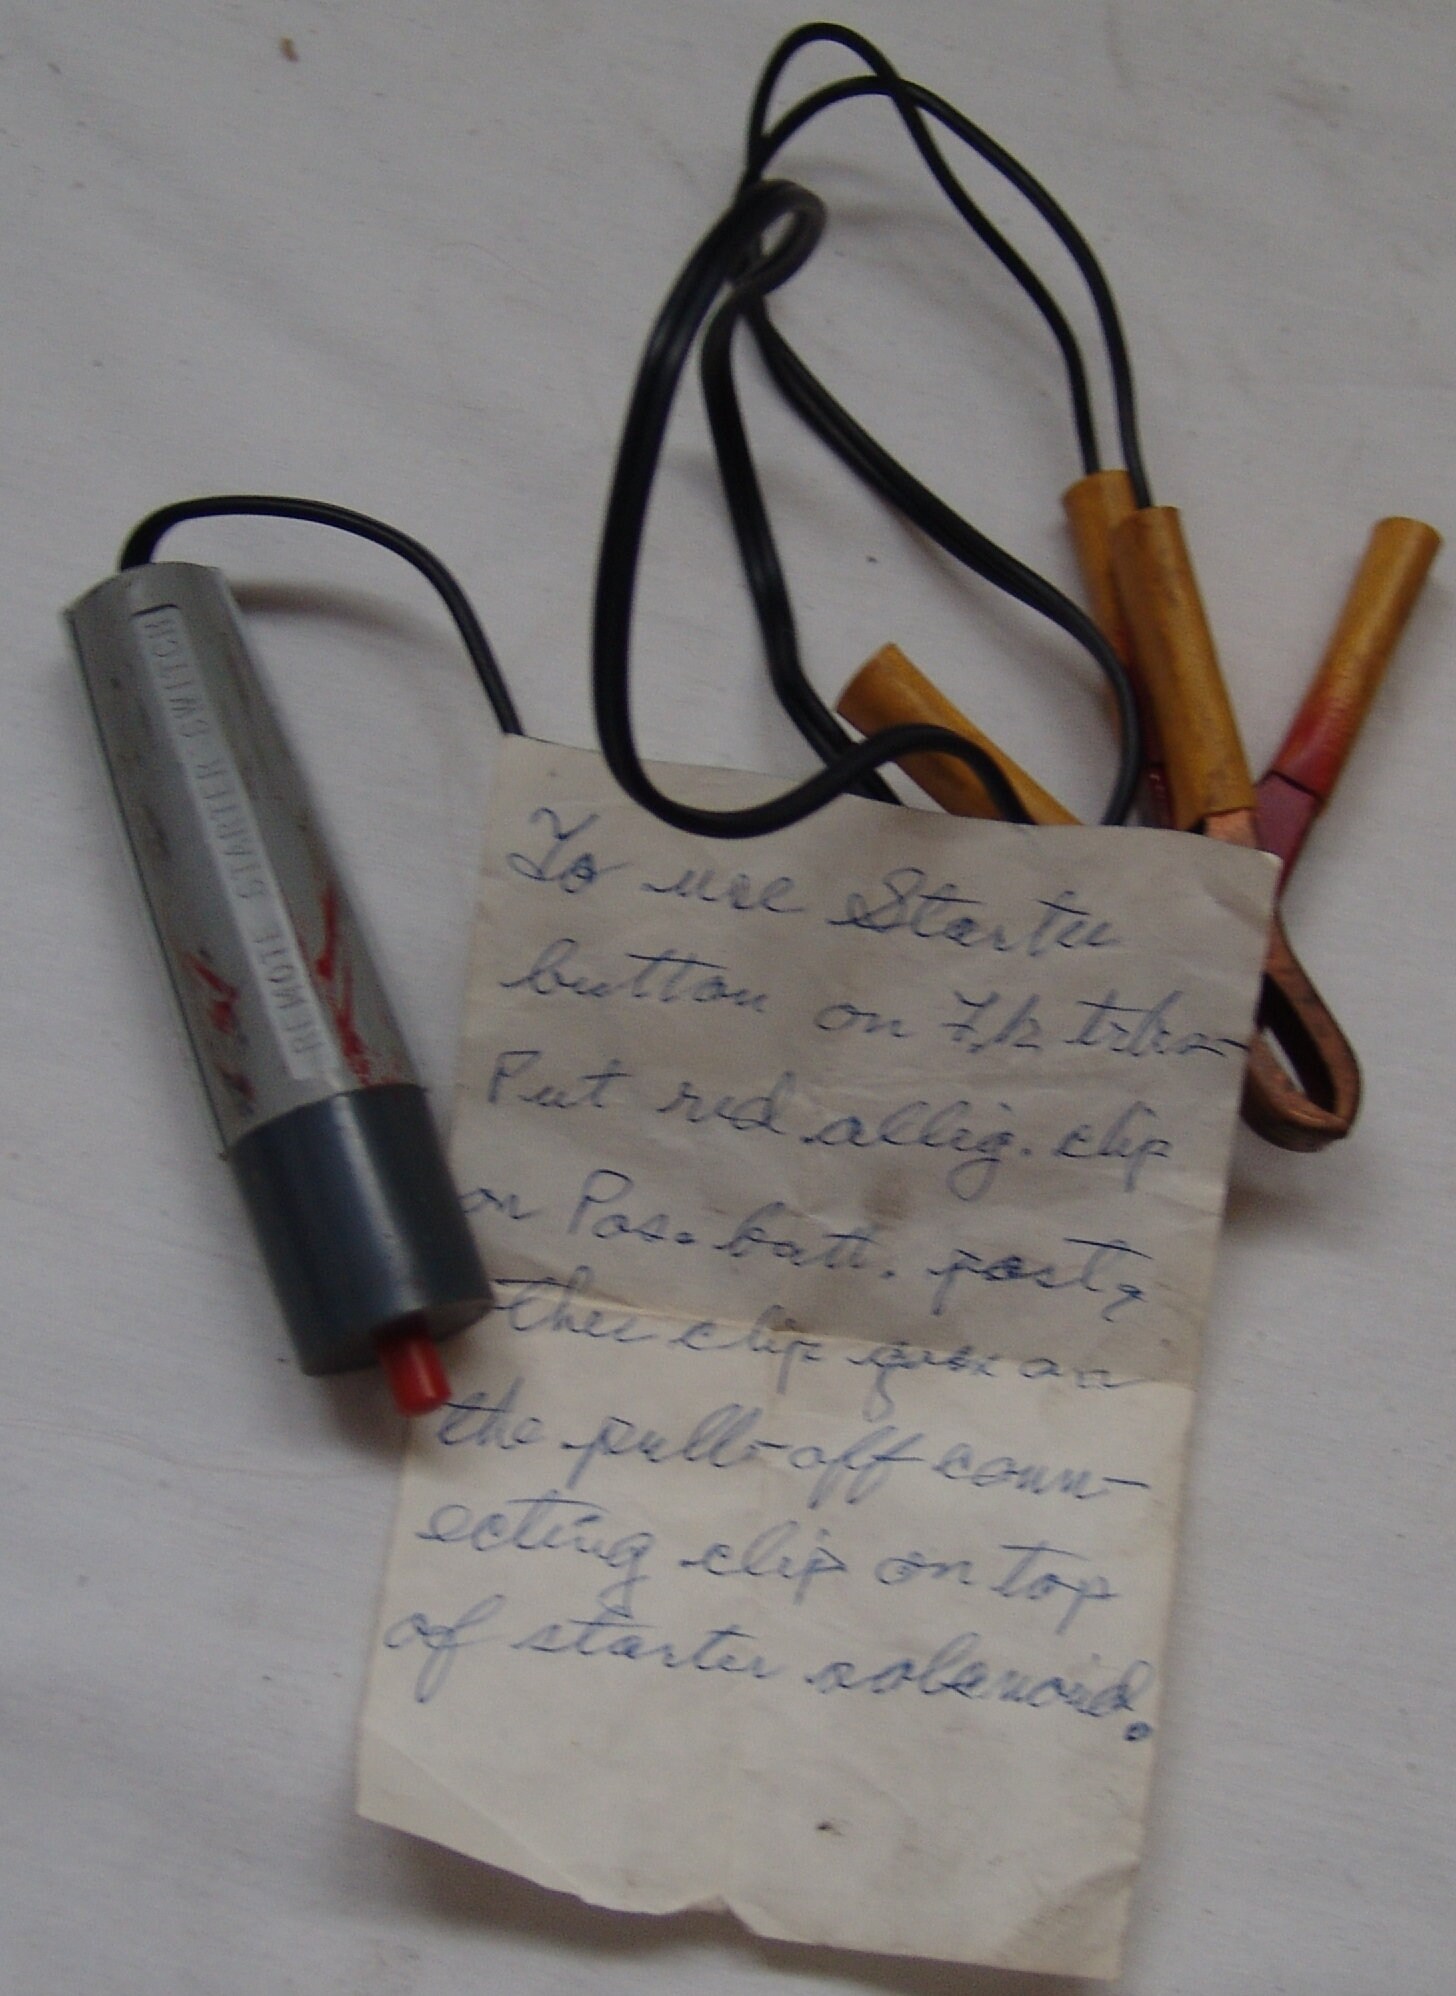 REMOTE STARTER SWITCH
To use Starter
button on
Put red allig. clip
on Pos. batt. post &
other clip goes on
the pull-off conn-
ecting clip on top
of starter solenoid.